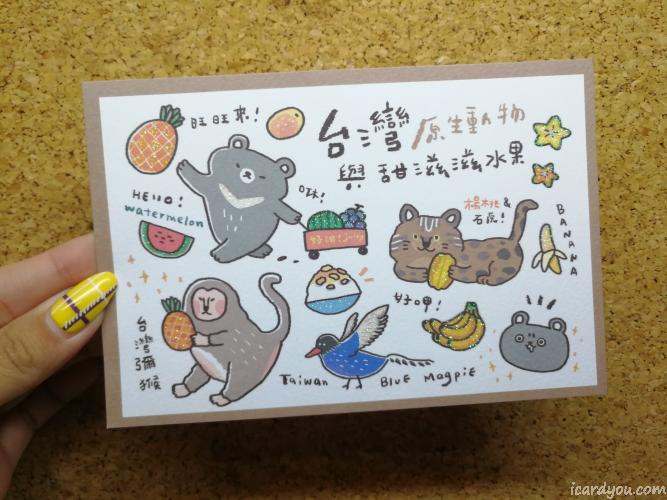 旺旺來！
台灣原生動物
與甜滋滋水果
HEllO！
watermelon
咻！
好甜！Juicy
楊桃&
石虎！
BANANA
台灣獼猴
好呷！
Taiwan Blue Magpie
icardyou.com